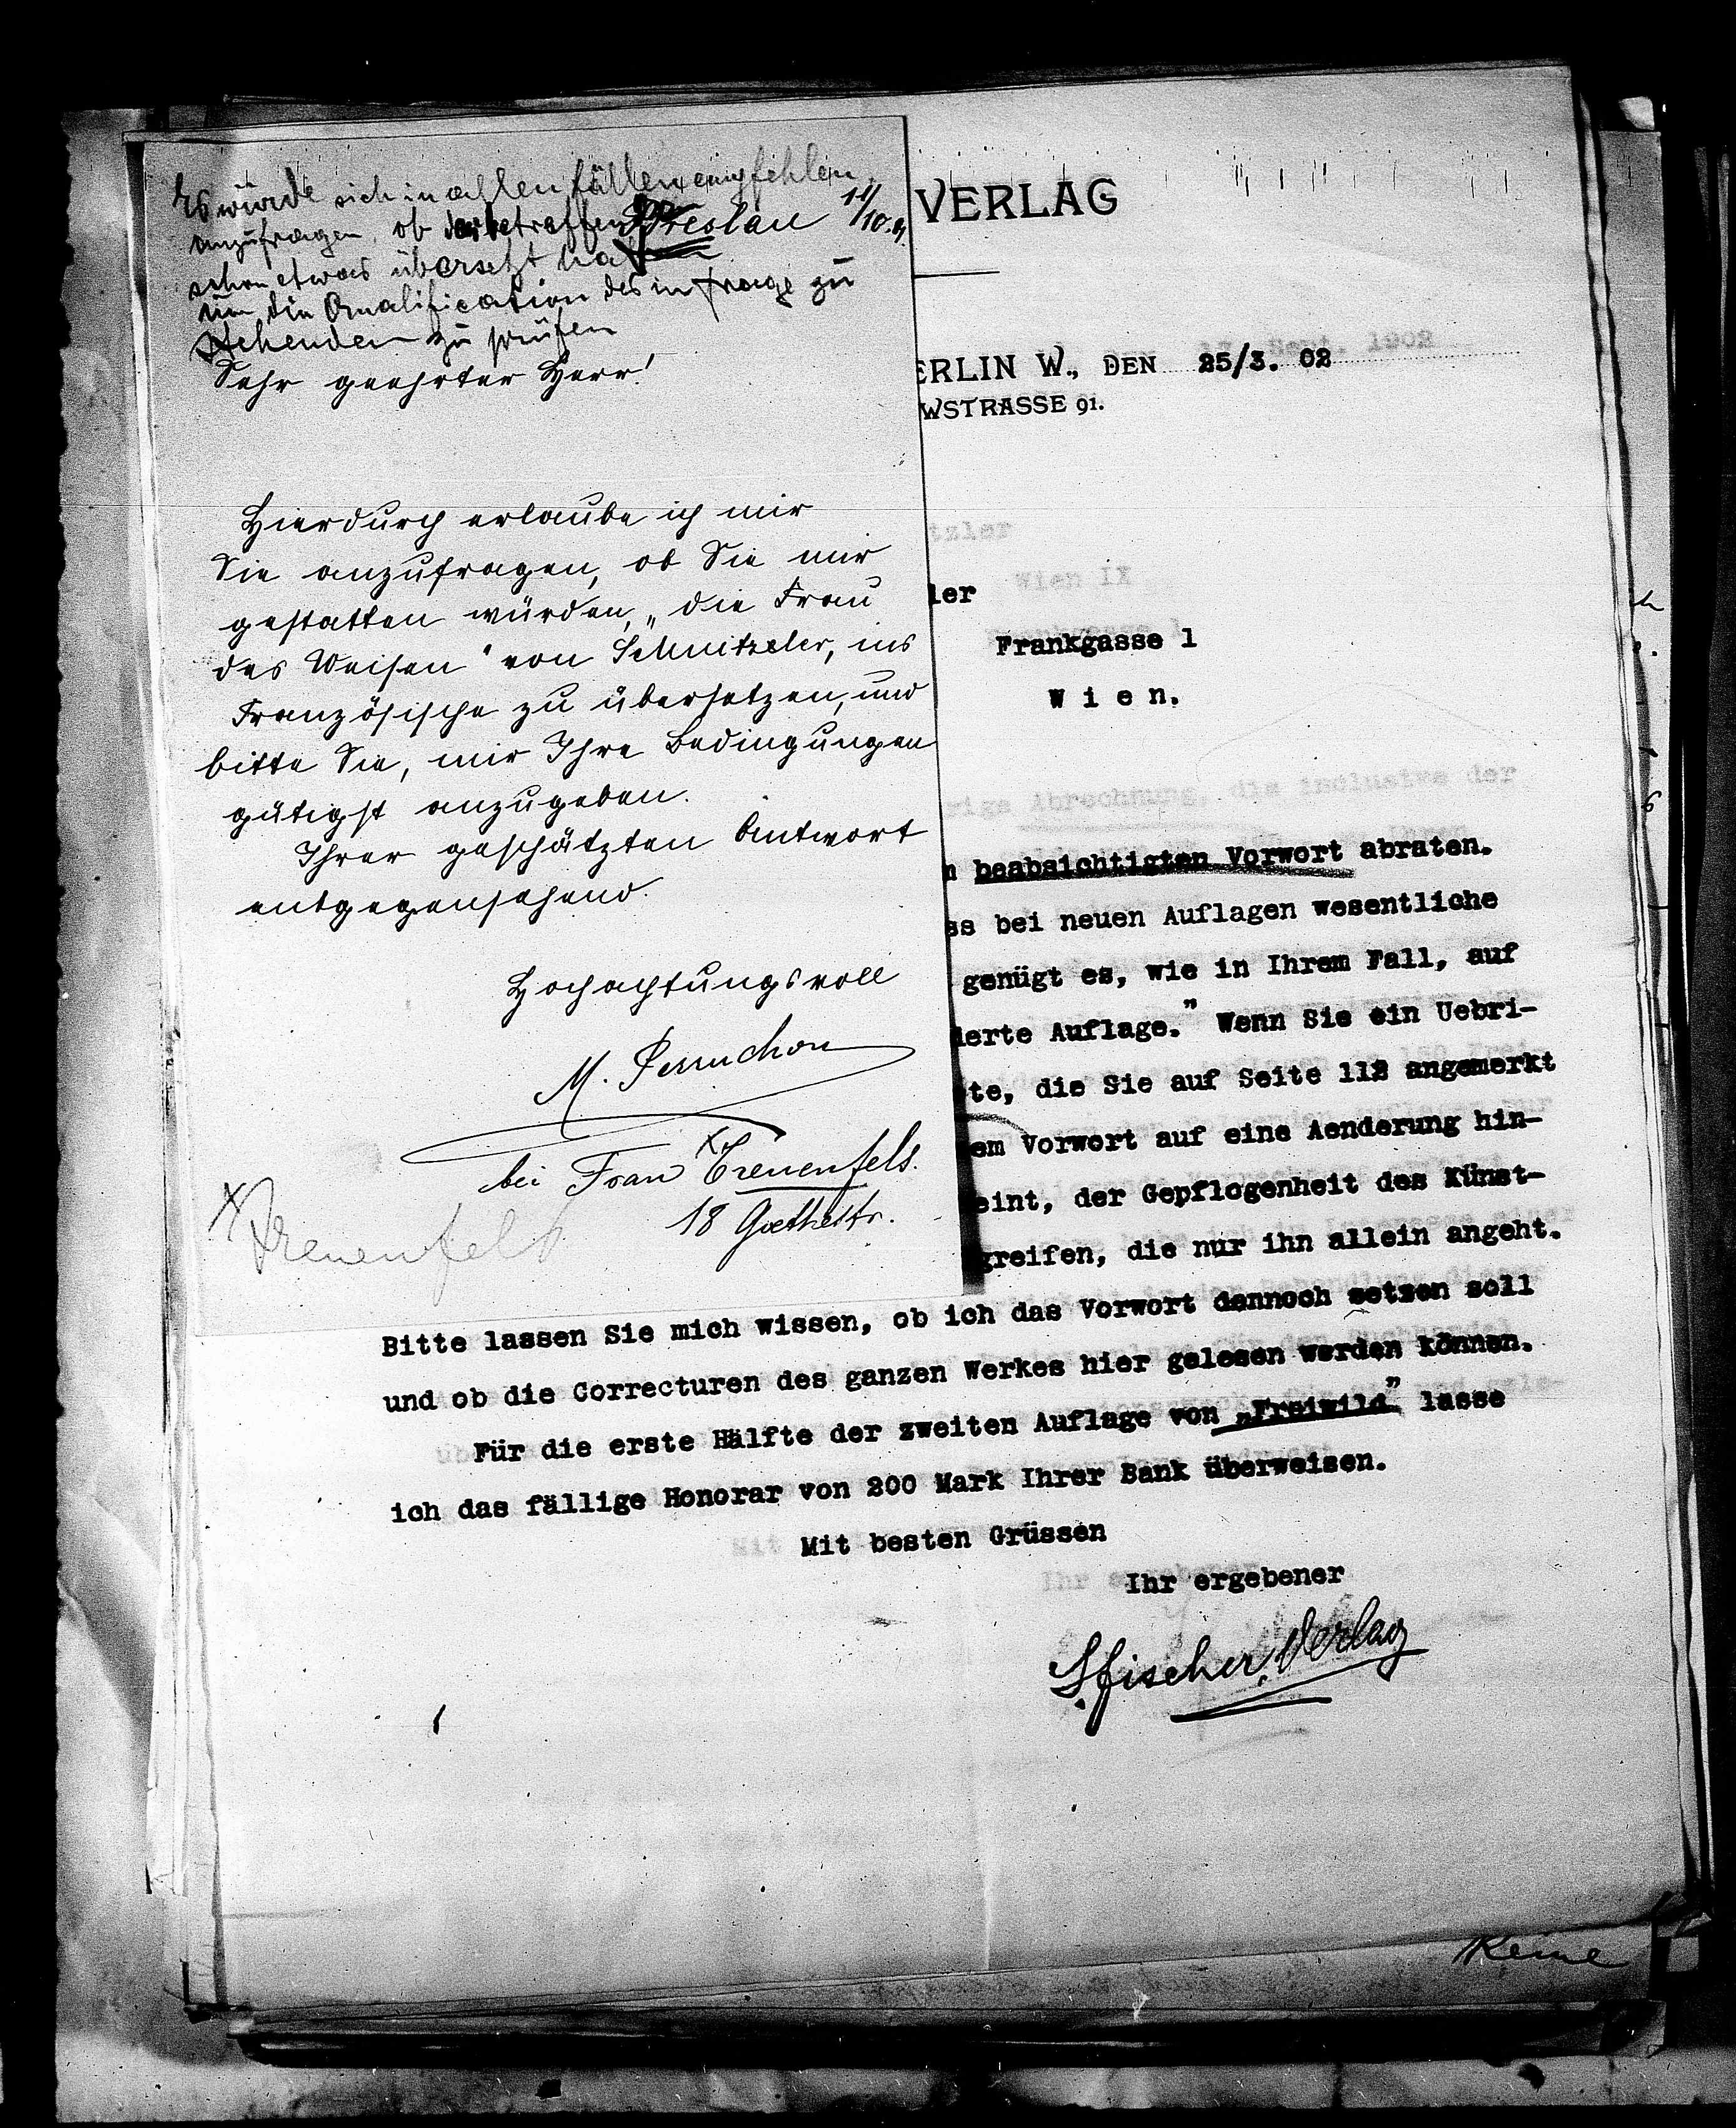 Es würde sich in allen Fällen empfehlen,
anzufragen, ob der betreffende
Breslau 11/10.
schon etwas übersetzt hat
um die Qualification des in Frage zu
stehenden zu prüfen
Sehr geehrter Herr!
Hierdurch erlaube ich mir
Sie anzufragen, ob Sie mir
gestatten würden, „die Frau
des Weisen" von Schnitzeler, ins
Französische zu übersetzen, und
bitte Sie, mir Ihre Bedingungen
gütigst anzugeben.
Ihrer geschätzten Antwort
entgegensehend.
Hochachtungsvoll
M. Perruchon
bei Frau Treuenfels.
18 Goethestr.
Treuenfels
VERLAG
ERLIN W., DEN 25/3. 02
WSTRASSE 91.
ler
Frankgasse 1
Wien.
n beabsichtigten Vorwort abraten.
ss bei neuen Auflagen wesentliche
genügt es, wie in Ihrem Fall, auf
derte Auflage." Wenn Sie ein Uebri-
te, die Sie auf Seite 112 angemerkt
em Vorwort auf eine Aenderung hin-
eint, der Gepflogenheit des Künst-
greifen, die nur ihn allein angeht.
Bitte lassen Sie mich wissen, ob ich das Vorwort dennoch setzen soll
und ob die Correcturen des ganzen Werkes hier gelesen werden können.
Für die erste Hälfte der zweiten Auflage von „Freiwild" lasse
ich das fällige Honorar von 200 Mark Ihrer Bank überweisen.
Mit besten Grüssen
Ihr ergebener
S. Fischer, Verlag
Keine